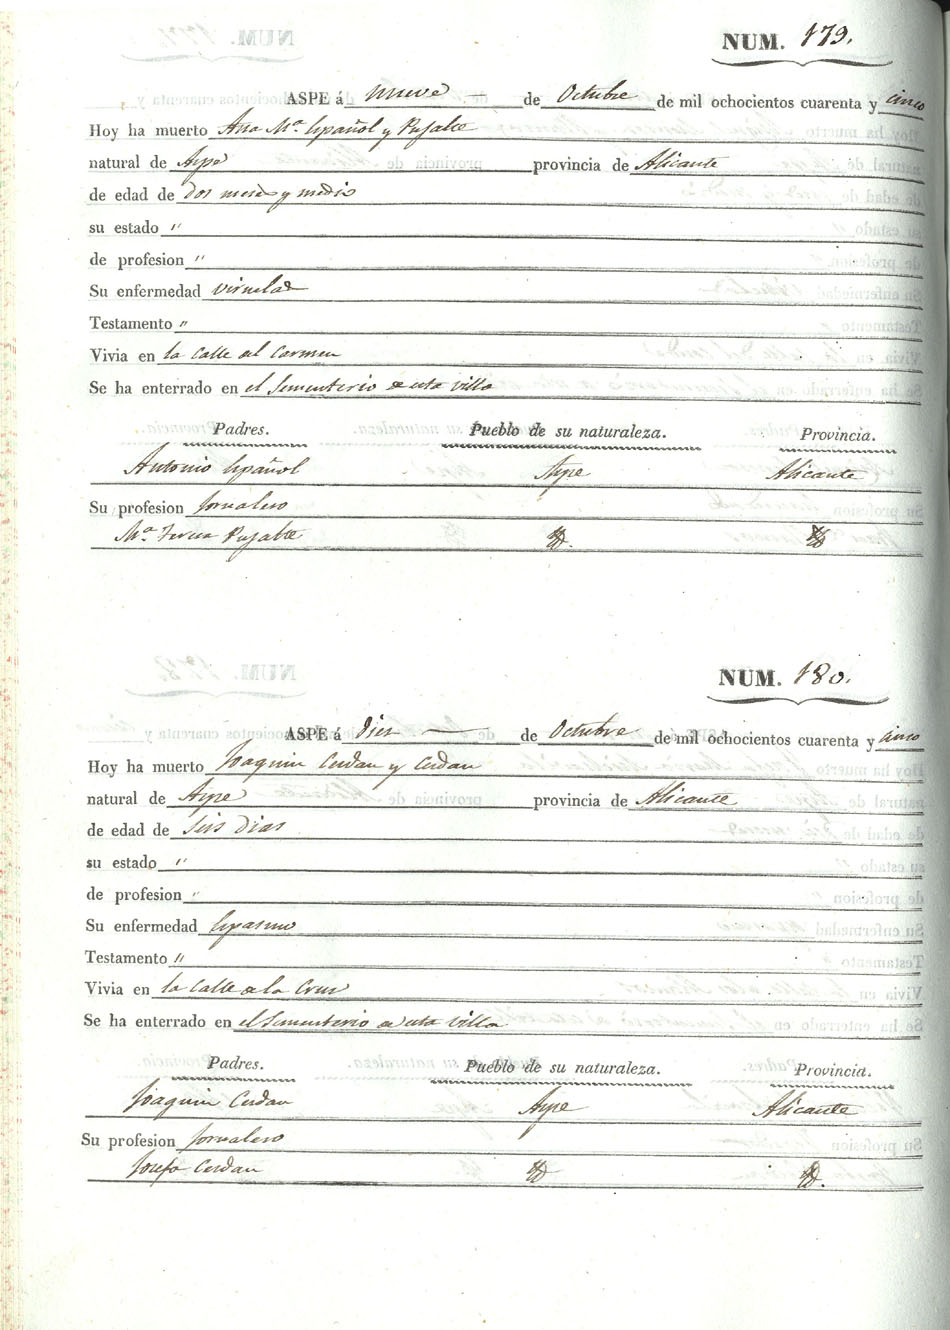 NUM. 179.
ASPE á nueve — de Octubre de mil ochocientos cuarenta y cinco
Hoy ha muerto Ana Mª Español y Pujalte
natural de Aspe provincia de Alicante
de edad de dos meses y medio
su estado "
de profesion "
Su enfermedad viruelas
Testamento "
Vivia en la Calle del Carmen
Se ha enterrado en el Sementerio de esta villa
Padres. Pueblo de su naturaleza. Provincia.
Antonio Español Aspe Alicante
Su profesion Jornalero
Mª Teresa Pujalte Yd. Yd.
NUM. 180.
ASPE á Diez — de Octubre de mil ochocientos cuarenta y cinco
Hoy ha muerto Joaquin Cerdan y Cerdan
natural de Aspe provincia de Alicante
de edad de Seis dias
su estado "
de profesion "
Su enfermedad Espasmo
Testamento "
Vivia en la Calle de la Cruz
Se ha enterrado en el Sementerio de esta villa
Padres. Pueblo de su naturaleza. Provincia.
Joaquin Cerdan Aspe Alicante
Su profesion Jornalero
Josefa Cerdan Yd Yd.